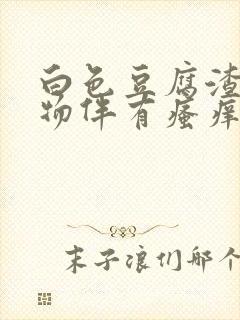 白色豆腐渣
物伴有瘙痒
末子浪们那个